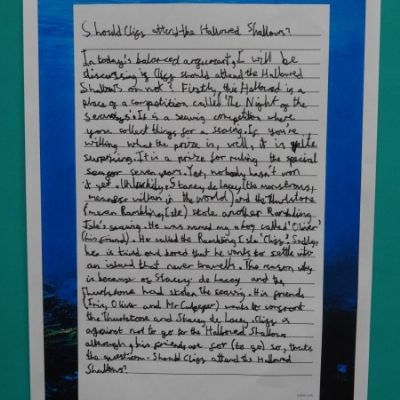 Should Cliff attend the Hallowed Shallows?
In today's balanced argument, I will be
discussing if Cliff should attend the Hallowed
Shallows or not? Firstly, this Hallowed is a
place of a competition called 'The Night of the
Seawigs'. It is a seawig competition where
you collect things for a seawig. If you're
willing what the prize is, well, it is
surprising. It is a prize for ruling the special
sea for seven years. Yet, nobody hasn't won
it yet. Unluckily, Stacey de Lacey (the monstrous,
meanest villain in the world) and the Thurlstone
(Rambling Isle) stole another Rambling
Isle's seawig. He was named by a boy called 'Oliver'
(his friend). He called the Rambling Isle 'Cliff'. Sadly,
he is tired and bored that he wants to settle into
an island that never travels. The reason why
is because of Stacey de Lacey and the
Thurlstone had stolen the seawig. His friends
(Iris, Oliver and Mr Culpeper) wants to confront
the Thurlstone and Stacey de Lacey. Cliff is
against not to go to the Hallowed Shallows
although his friends are for (to go) so, that's
the question. Should Cliff attend the Hallowed
Shallows?